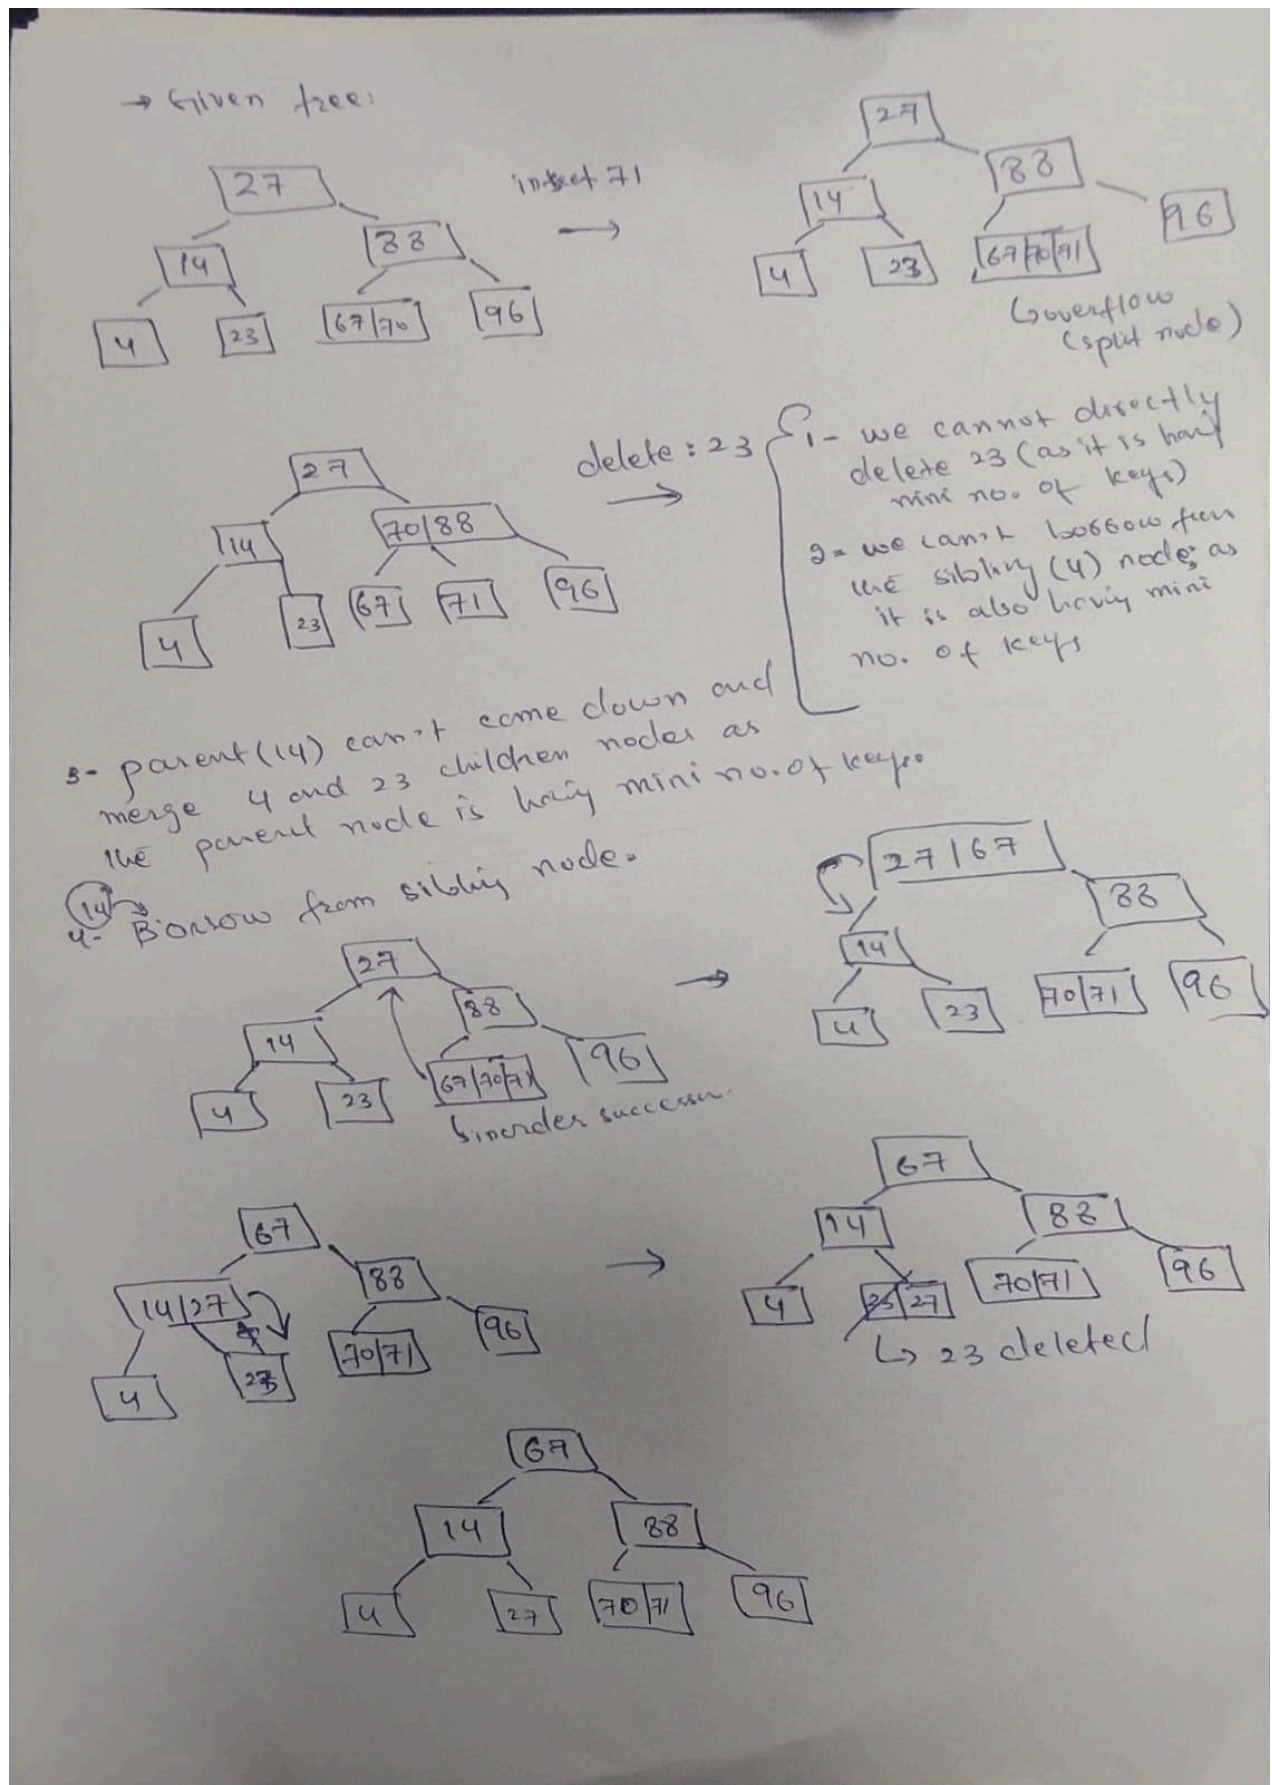 → Given tree:
27
14 88
4 23 67|70 96
insert 71
→
27
14 88
4 23 67|70|71 96
↳ overflow
(split node)
27
14 70|88
4 23 67 71 96
delete : 23
→
1- we cannot directly
delete 23 (as it is havij
mini no. of keys)
2- we can't borrow from
the sibling (4) node; as
it is also having mini
no. of keys
3- parent (14) can't come down and
merge 4 and 23 children nodes as
the parent node is having mini no. of keys.
14
4- Borrow from sibling node.
27
14 88
4 23 67|70|71 96
↳ inorder successor.
→
27|67
14 88
4 23 70|71 96
67
14|27 88
4 23 70|71 96
→
67
14 88
4 23|27 70|71 96
↳ 23 deleted
67
14 88
4 27 70|71 96